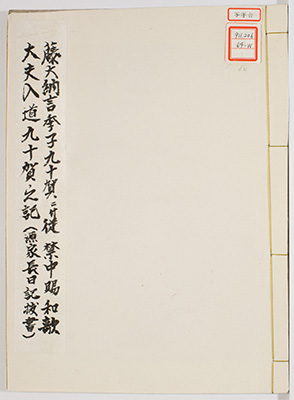 藤大納言季子九十賀ニ付従禁中賜和歌
大夫入道九十賀之記(源家長日記抜書)